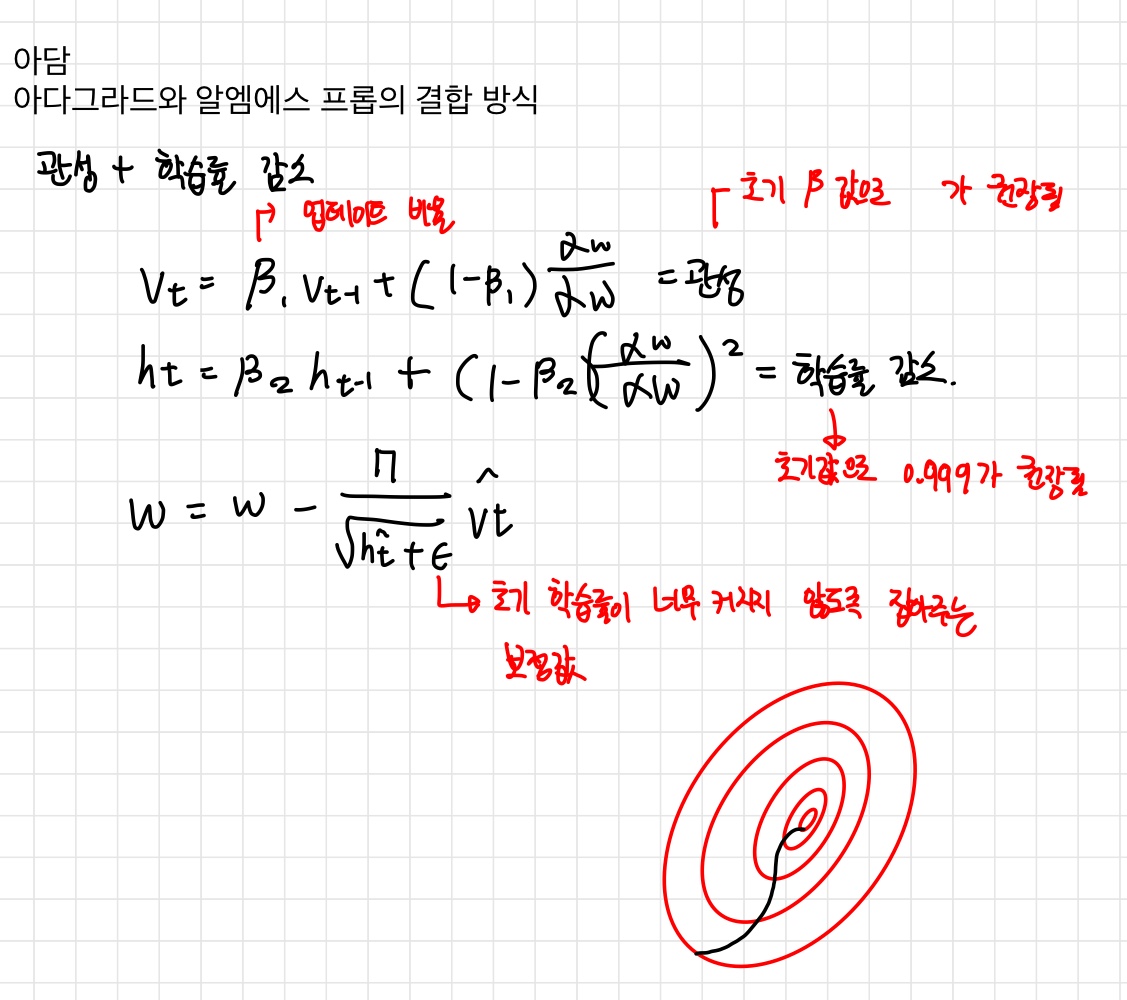 아담
아다그라드와 알엠에스 프롭의 결합 방식
관성 + 학습률 감소
업데이트 비율
초기 β 값으로 가 권장됨
Vt = β₁ Vt-1 + (1-β₁) αw/αw = 관성
ht = β₂ ht-1 + (1-β₂(αw/αw)² = 학습률 감소.
초기값으로 0.999가 권장됨
w = w - η/√ĥt+ε V̂t
초기 학습률이 너무 커지지 않도록 잡아주는
보정값